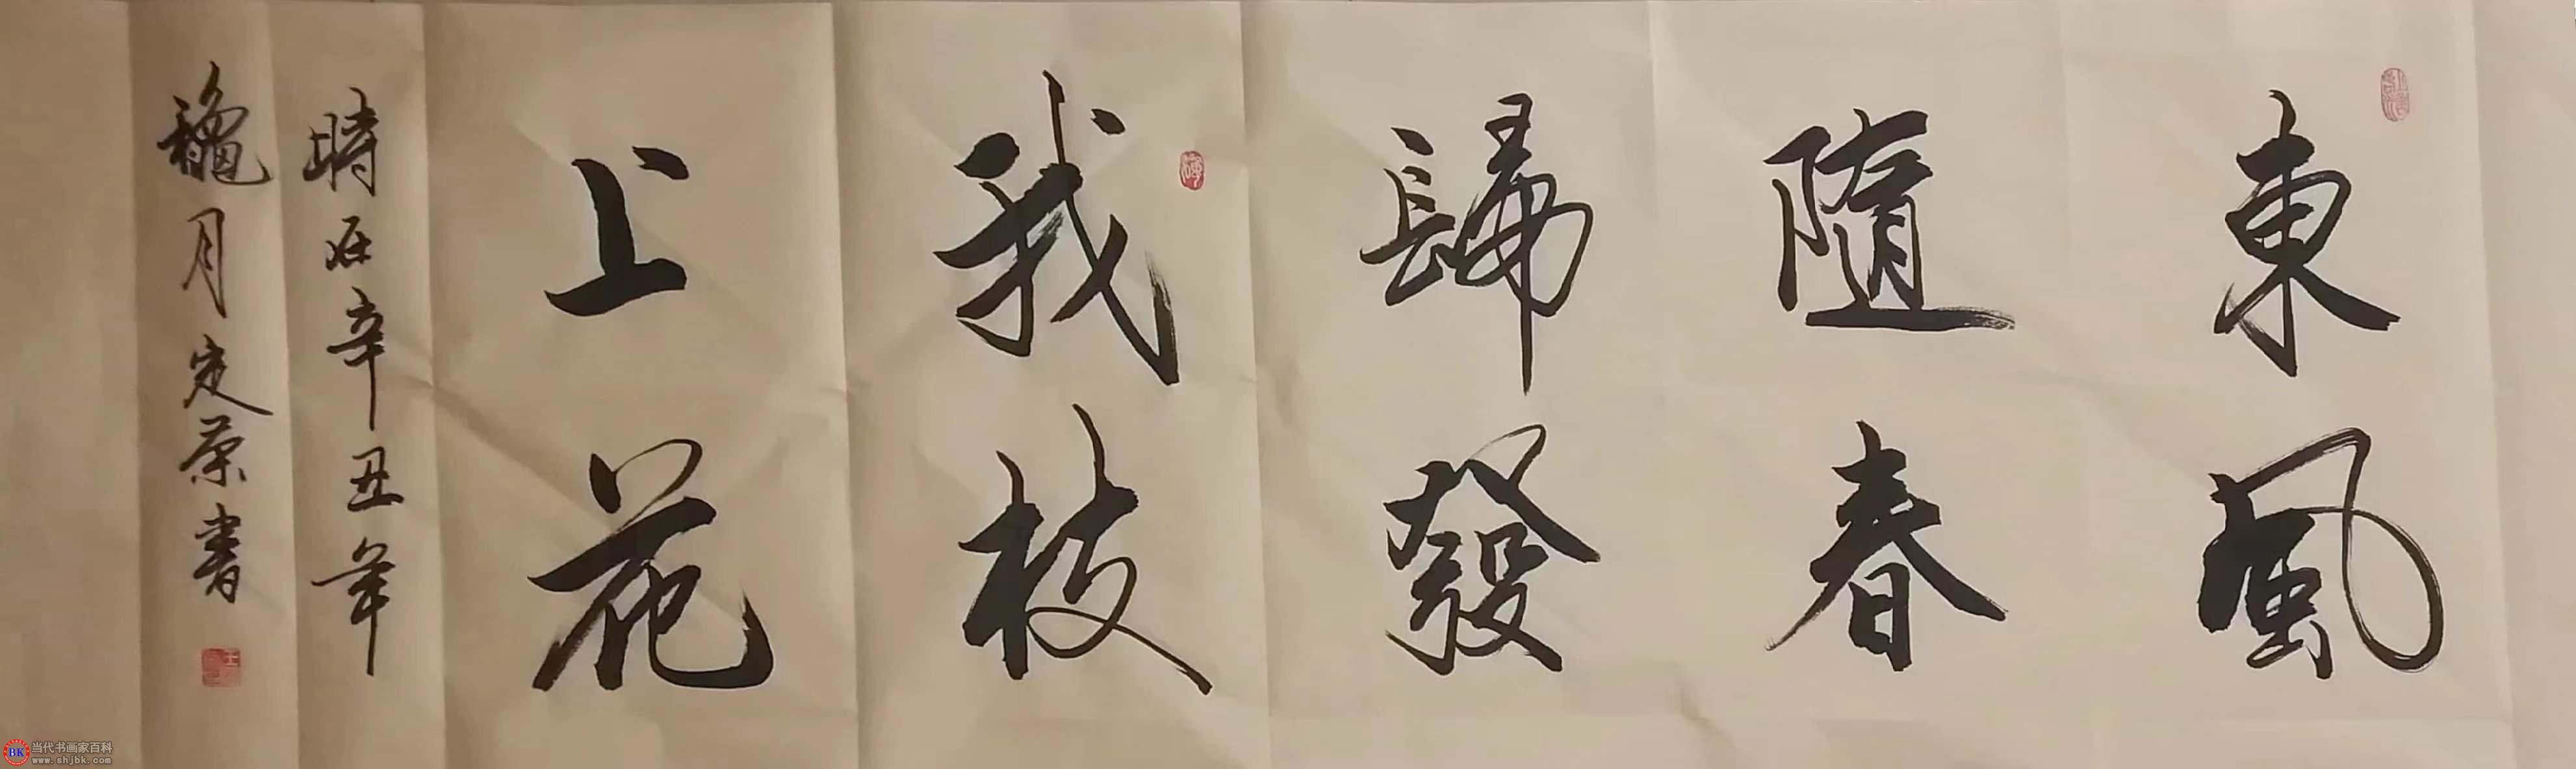 東風
隨春
歸發
我枝
上花
時在辛丑年
龝月定榮書
当代书画家百科
www.shjbk.com
BK